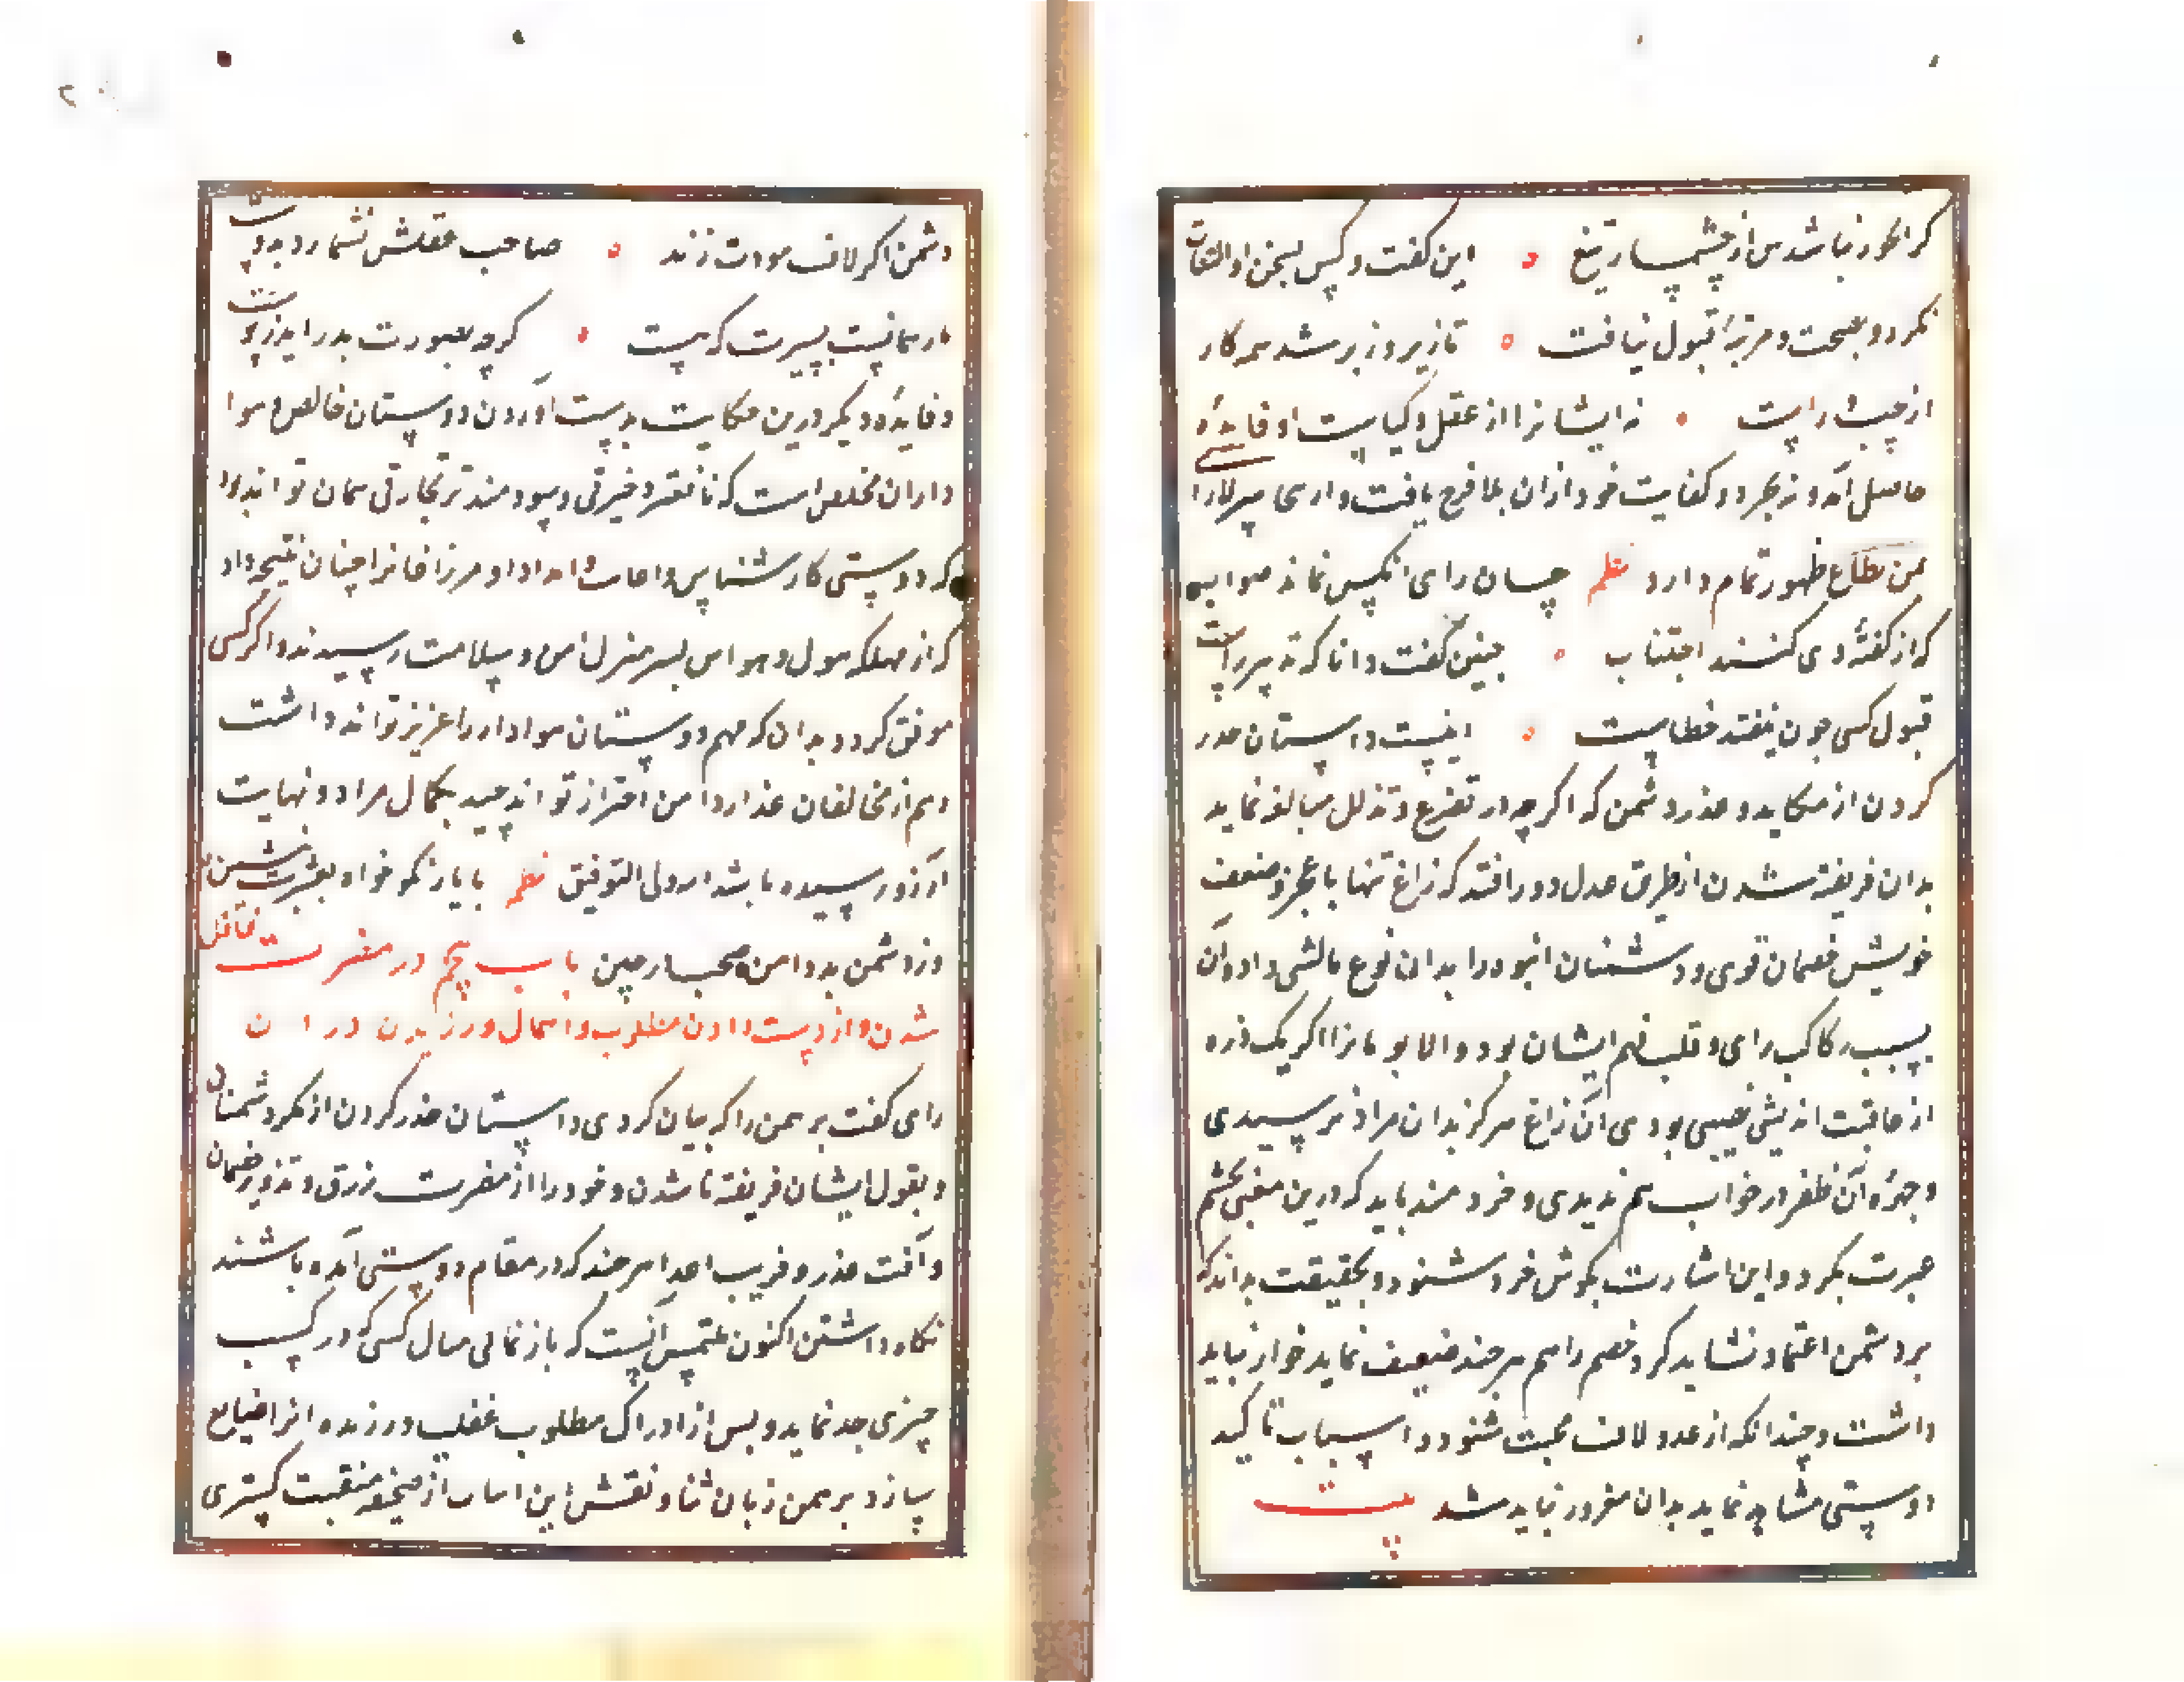 گر انکور نباشد س از چشمسار تیغ ه این گفت و کس بسخن او التفات
نکرد و بصحت و مرتبهٔ قبول نیافت ه تا زیر و زبر شد همه کار
از چپ و راست ه نه ایشانرا از عقل و کیاست او فایدهٔ
حاصل آمد و نه بخرد و کفایت خود ازان بلا فرج یافت و
من یطاع ظهور تمام دارد نظم چسان رای انکس نماید صواب
که از کفتهٔ وی کنند اجتناب ه چنین گفت دانا که تدبیر راست
قبول کسی چون نیفتد خطاست ه اینست داستان حذر
کردن از مکاید و عذر دشمن که اگرچه در تضرع و تذلل مبالغه نماید
بدان فریفته شدن از طریق عدل دور افتد که زاغ تنها با عجز و ضعف
خویش خصمان قوی و دشمنان انبوه را بدان نوع مالشی داد و آن
بسبب رکاکت رای و قلت فهم ایشان بود و الا بومانرا اگر یک ذره
از عاقبت اندیشی نصیبی بودی آن زاغ هرگز بدان مراد نرسیدی
و چهرهٔ آن ظفر در خواب هم ندیدی و خردمند باید که درین معنی بچشم
عبرت نگرد و این اشارت بگوش خرد شنود و بحقیقت بداند که
بر دشمن اعتماد نشاید کرد و خصم را هم هرچند ضعیف نماید خوار نباید
داشت و چندانکه از عدو لاف محبت شنود و اسباب تاکید
دوستی مشاهده نماید بدان مغرور نباید شد بیت
دشمن اگر لاف مودت زند ه صاحب عقلش نشمارد بدوست
مار همانست بسیرت که هست ه گرچه بصورت بدر آید ز پوست
و فایدهٔ دیگر درین حکایت بدست آوردن دوستان خالص و هوا
داران مخلص است که نافعتر ذخیرتی و سودمندتر تجارتی همان تواند بود
که دوستی کارشناس و اعانت و امداد او مر زاغانرا چنان نتیجه داد
که از مهلکه هول و هراس بسر منزل امن و سلامت رسیدند و اگر کسی
موفق گردد بدان که هم دوستان هوادار را عزیز تواند داشت
و هم از مخالفان غدار دامن احتراز تواند چید بکمال مراد و نهایت
آرزو رسیده باشد الله ولی التوفیق نظم با یار نکو خواه بعشرت بنشین
وز دشمن بد دامن صحبت درچین باب پنجم در مضرت غافل
شدن و از دست دادن مطلوب و اهمال ورزیدن در ان
رای گفت برهمن را که بیان کردی داستان حذر کردن از مکر دشمنان
و بقول ایشان فریفته ناشدن و خود را از مضرت زرق و تزویر خصمان
و آفت غدر و فریب اعدا هرچند که در مقام دوستی آمده باشند
نگاه داشتن اکنون ملتمس آنست که باز نمائی مثال کسی که در کسب
چیزی جد نماید و بس از ادراک مطلوب غفلت ورزیده انرا ضایع
سازد برهمن زبان ثنا و نقش این ابیات از صحیفه منقبت گستری